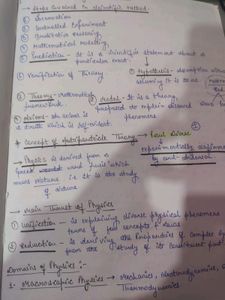 → Steps involved in scientific method:
① Observation
② Controlled Experiment
③ Qualitative reasoning
④ Mathematical modelling
⑤ Prediction - It is a scientific statement about a particular event.
⑥ Verification of Theory
① Hypothesis - assumption without
assuming it is true
② Theory -
phenomena
③ model - It is a theory,
proposed to explain observed
④ axiom -
a truth which is self-evident.
* Concept of Antiparticle Theory → Paul Dirac
experimentally confirmed
by Carl Anderson
→ Physics is derived from a
Greek word which
means nature. It is the study
of nature
→ Main Thrust of Physics
① Unification - is explaining diverse physical phenomena
terms of few concepts & laws
② Reduction - is deriving the Properties of complex
from the study of its constituent part
Domains of Physics :-
1. Macroscopic Physics → Mechanics, electrodynamics,
Thermodynamics